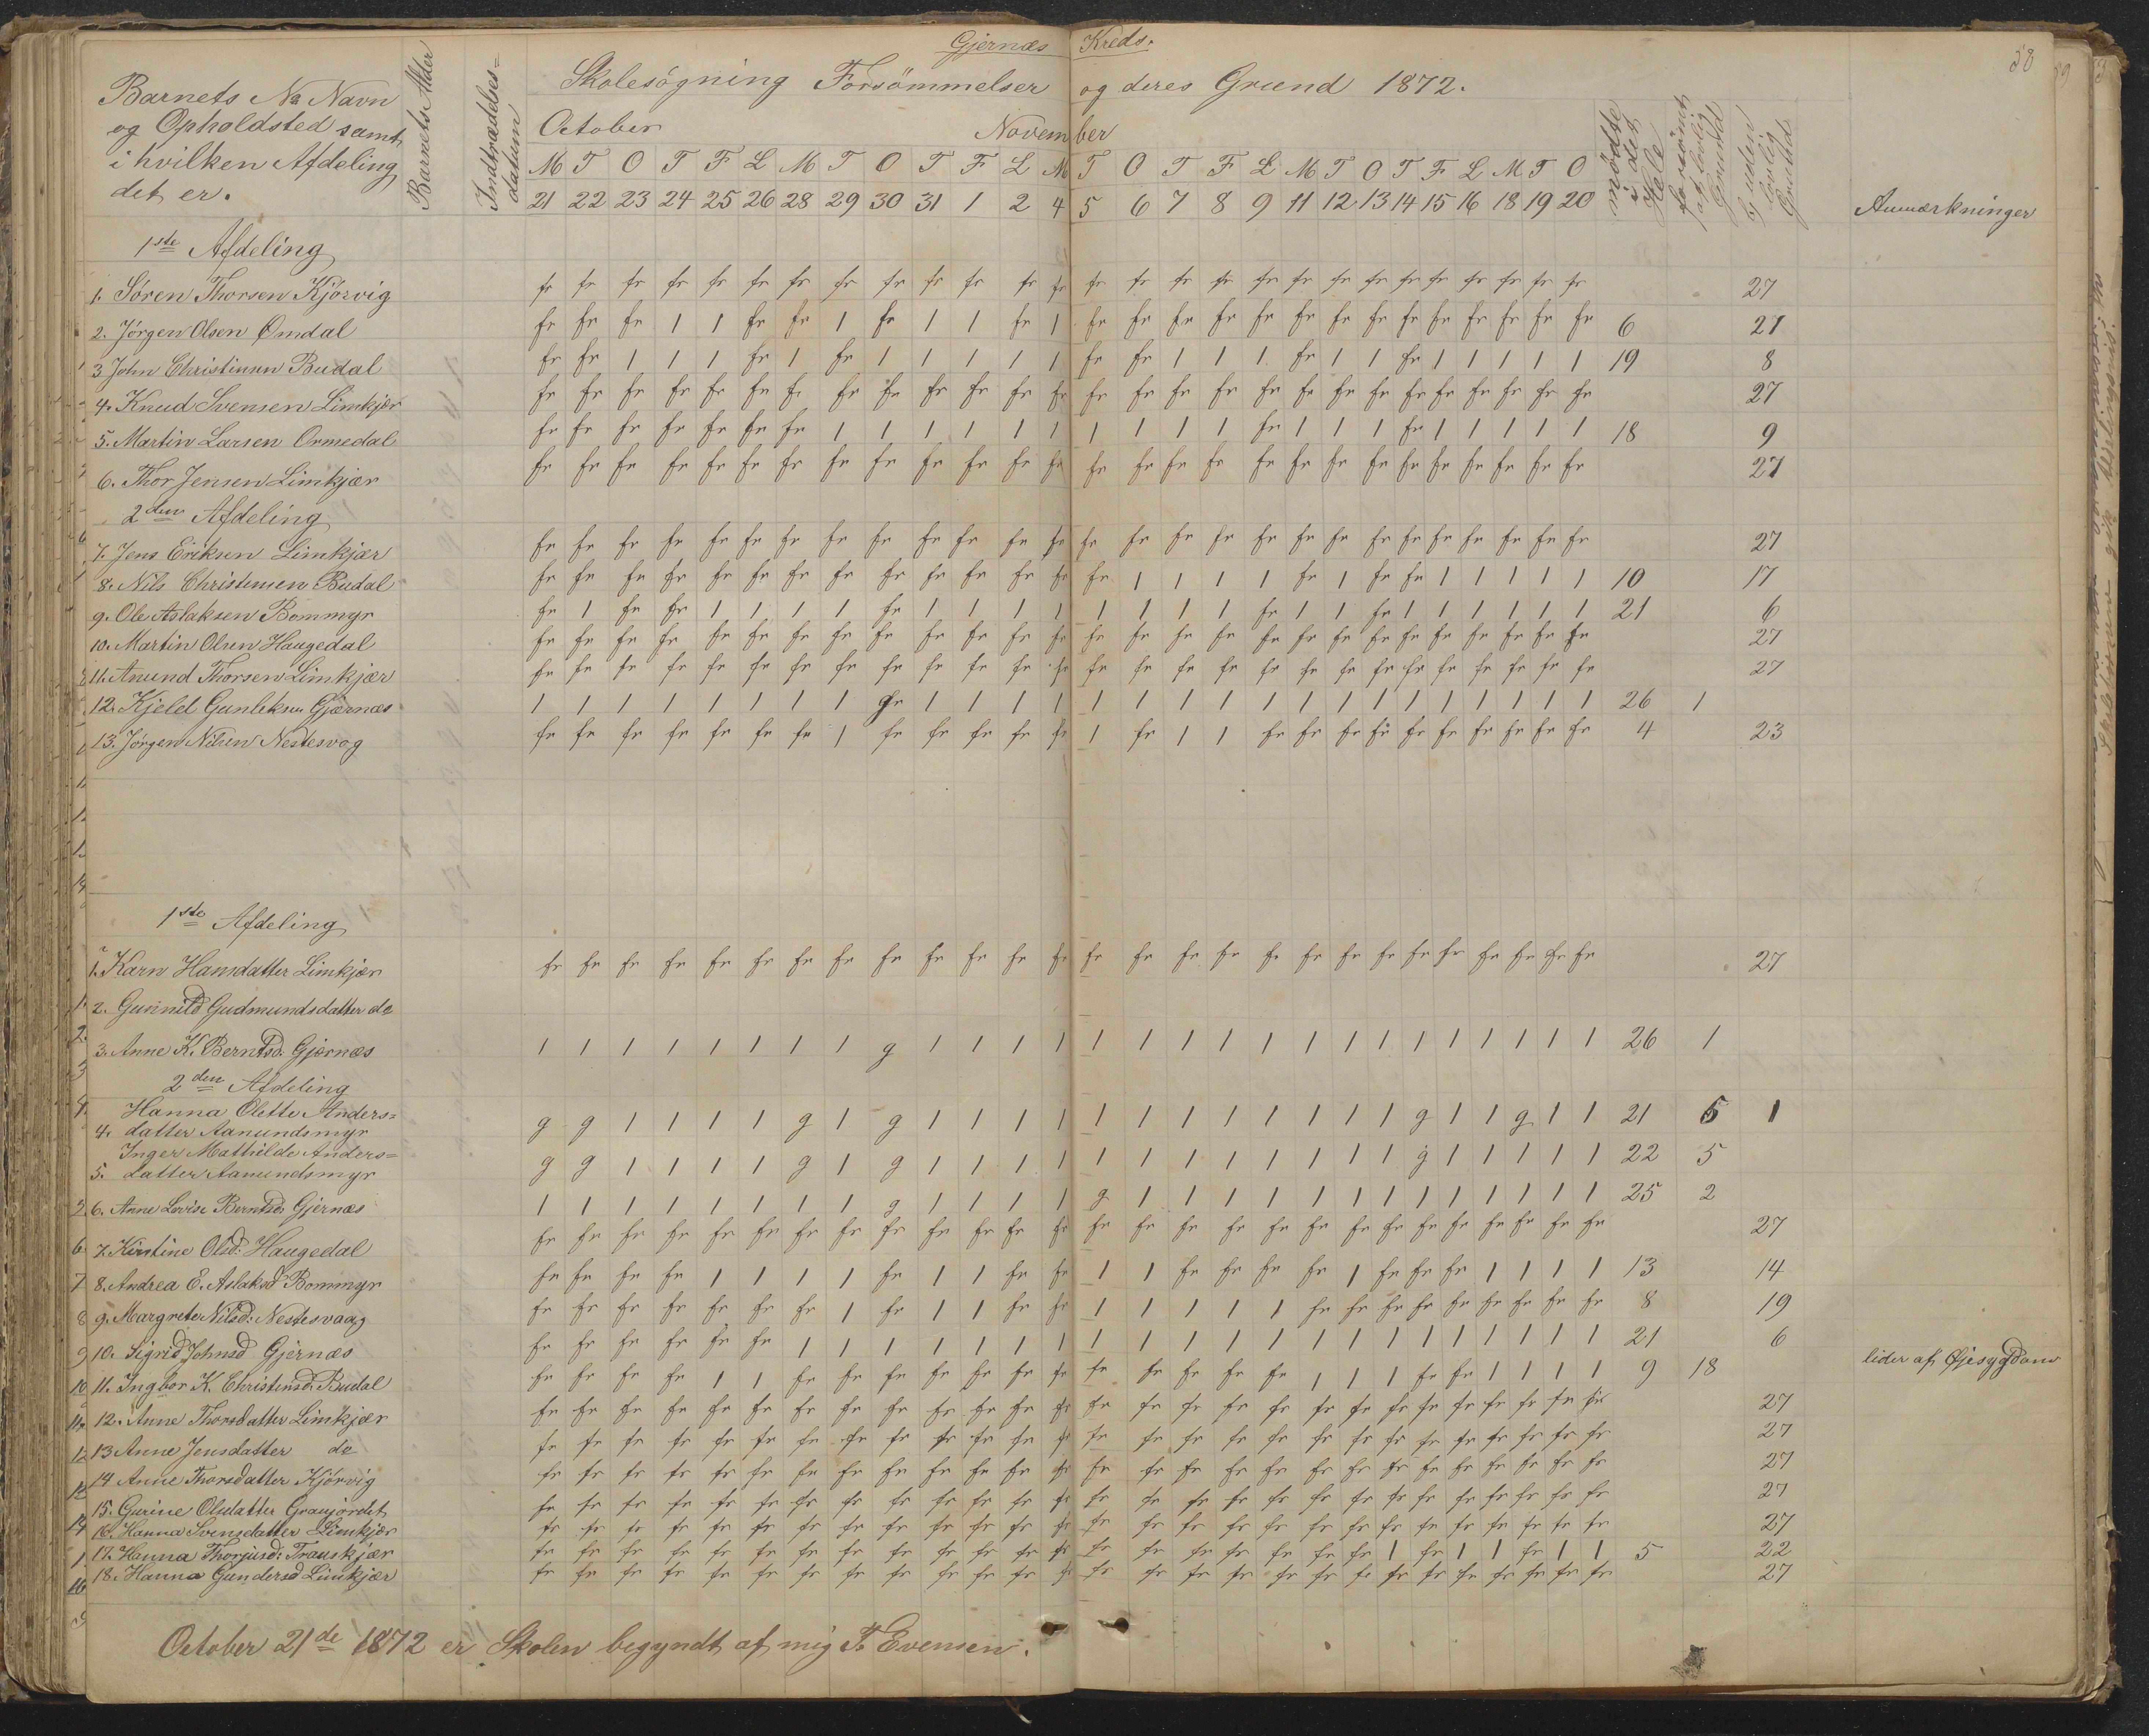 Gjernæs Kreds.
58
Barnets No Navn
og Opholdsted samt
i hvilken Afdeling
det er.
Barnets Alder
Indtrædelses=
datum
Skolesögning Forsömmelser og deres Grund 1872.
October November
M T O T F L M T O T F L M T O T F L M T O T F L M T O
21 22 23 24 25 26 28 29 30 31 1 2 4 5 6 7 8 9 11 12 13 14 15 16 18 19 20
mødte
i det
Hele
forsömt
af lovlig
Grund
uden
lovlig
Grund
Anmærkninger
1ste Afdeling
1. Sören Thorsen Kjörvig fr fr fr fr fr fr fr fr fr fr fr fr fr fr fr fr fr fr fr fr fr fr fr fr fr fr fr 27
2. Jörgen Olsen Omdal fr fr fr 1 1 fr fr 1 fr 1 1 fr 1 fr fr fr fr fr fr fr fr fr fr fr fr fr fr 6 21
3 John Christensen Budal fr fr 1 1 1 fr 1 fr 1 1 1 1 1 fr fr 1 1 1 fr 1 1 fr 1 1 1 1 1 19 8
4. Knud Svensen Limkjær fr fr fr fr fr fr fr fr fr fr fr fr fr fr fr fr fr fr fr fr fr fr fr fr fr fr fr 27
5. Martin Larsen Ormedal fr fr fr fr fr fr fr 1 1 1 1 1 1 1 1 1 1 fr 1 1 1 fr 1 1 1 1 1 18 9
6. Thor Jensen Limkjær fr fr fr fr fr fr fr fr fr fr fr fr fr fr fr fr fr fr fr fr fr fr fr fr fr fr fr 27
2den Afdeling
7. Jens Eriksen Limkjær fr fr fr fr fr fr fr fr fr fr fr fr fr fr fr fr fr fr fr fr fr fr fr fr fr fr fr 27
8. Nils Christensen Budal fr fr fr fr fr fr fr fr fr fr fr fr fr fr 1 1 1 1 fr 1 fr fr 1 1 1 1 1 10 17
9. Ole Aslaksen Bommyr fr 1 fr fr 1 1 1 1 fr 1 1 1 1 1 1 1 1 fr 1 1 fr 1 1 1 1 1 1 21 6
10. Martin Olsen Haugedal fr fr fr fr fr fr fr fr fr fr fr fr fr fr fr fr fr fr fr fr fr fr fr fr fr fr fr 27
11. Anund Thorsen Limkjær fr fr fr fr fr fr fr fr fr fr fr fr fr fr fr fr fr fr fr fr fr fr fr fr fr fr fr 27
12. Kjeld Gunleksen Gjærnæs 1 1 1 1 1 1 1 1 gr 1 1 1 1 1 1 1 1 1 1 1 1 1 1 1 1 1 1 26 1
13. Jörgen Nilsen Nestesvog fr fr fr fr fr fr fr 1 fr fr fr fr fr 1 fr 1 1 fr fr fr fr fr fr fr fr fr fr 4 23
1ste Afdeling
1. Karn Hansdatter Limkjær fr fr fr fr fr fr fr fr fr fr fr fr fr fr fr fr fr fr fr fr fr fr fr fr fr fr fr 27
2. Gunnild Gudmundsdatter do
3. Anne K. Berntsd: Gjærnæs 1 1 1 1 1 1 1 1 g 1 1 1 1 1 1 1 1 1 1 1 1 1 1 1 1 1 1 26 1
2den Afdeling
Hanna Olette Anders=
4. datter Aanundsmyr g g 1 1 1 1 g 1 g 1 1 1 1 1 1 1 1 1 1 1 1 g 1 1 g 1 1 21 5 1
Inger Mathilde Anders=
5. datter Aamundsmyr g g 1 1 1 1 g 1 g 1 1 1 1 1 1 1 1 1 1 1 1 g 1 1 1 1 1 22 5
6. Anne Lovise Berntsd: Gjernæs 1 1 1 1 1 1 1 1 g 1 1 1 1 g 1 1 1 1 1 1 1 1 1 1 1 1 1 25 2
7. Kirstine Olsd: Haugedal fr fr fr fr fr fr fr fr fr fr fr fr fr fr fr fr fr fr fr fr fr fr fr fr fr fr fr 27
8. Andrea E. Aslaksd Bommyr fr fr fr fr 1 1 1 1 fr 1 1 fr fr 1 1 fr fr fr fr 1 fr fr fr 1 1 1 1 13 14
9. Margrete Nilsd: Nestesvaag fr fr fr fr fr fr fr 1 fr 1 1 fr fr 1 1 1 1 1 fr fr fr fr fr fr fr fr fr 8 19
10. Sigrid Johnsd Gjernæs fr fr fr fr fr fr 1 1 1 1 1 1 1 1 1 1 1 1 1 1 1 1 1 1 1 1 1 21 6
11. Ingbor K. Christensd: Budal fr fr fr fr 1 1 fr fr fr fr fr fr fr fr fr fr fr fr 1 1 1 fr fr 1 1 1 1 9 18 lider af Øjesygdom
12. Anne Thorsdatter Limkjær fr fr fr fr fr fr fr fr fr fr fr fr fr fr fr fr fr fr fr fr fr fr fr fr fr fr fr 27
13 Anne Jensdatter do fr fr fr fr fr fr fr fr fr fr fr fr fr fr fr fr fr fr fr fr fr fr fr fr fr fr fr 27
14 Anne Thorsdatter Kjörvig fr fr fr fr fr fr fr fr fr fr fr fr fr fr fr fr fr fr fr fr fr fr fr fr fr fr fr 27
15. Gurine Olsdatter Graujordet fr fr fr fr fr fr fr fr fr fr fr fr fr fr fr fr fr fr fr fr fr fr fr fr fr fr fr 27
16. Hanna Svensdatter Limkjær fr fr fr fr fr fr fr fr fr fr fr fr fr fr fr fr fr fr fr fr fr fr fr fr fr fr fr 27
17. Hanna Thorjusd: Trauskjær fr fr fr fr fr fr fr fr fr fr fr fr fr fr fr fr fr fr fr fr 1 fr 1 1 fr 1 1 5 22
18. Hanna Gundersd Limkjær fr fr fr fr fr fr fr fr fr fr fr fr fr fr fr fr fr fr fr fr fr fr fr fr fr fr fr 27
October 21de 1872 er Skolen begyndt af mig T. Evensen.